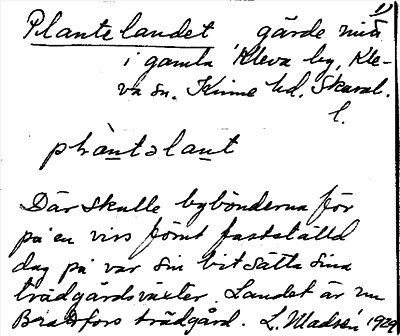 1)
Plantelandet gärde mitt
i gamla Kleva by, Kle-
va sn. Kinne hd. Skarab.
l.
plàntəlant
Där skulle bybönderna för
på en viss förut fastställd
dag på var sin bit sätta sina
trädgårdsväxter. Landet är nu
trädgård. L. Madsén 1929